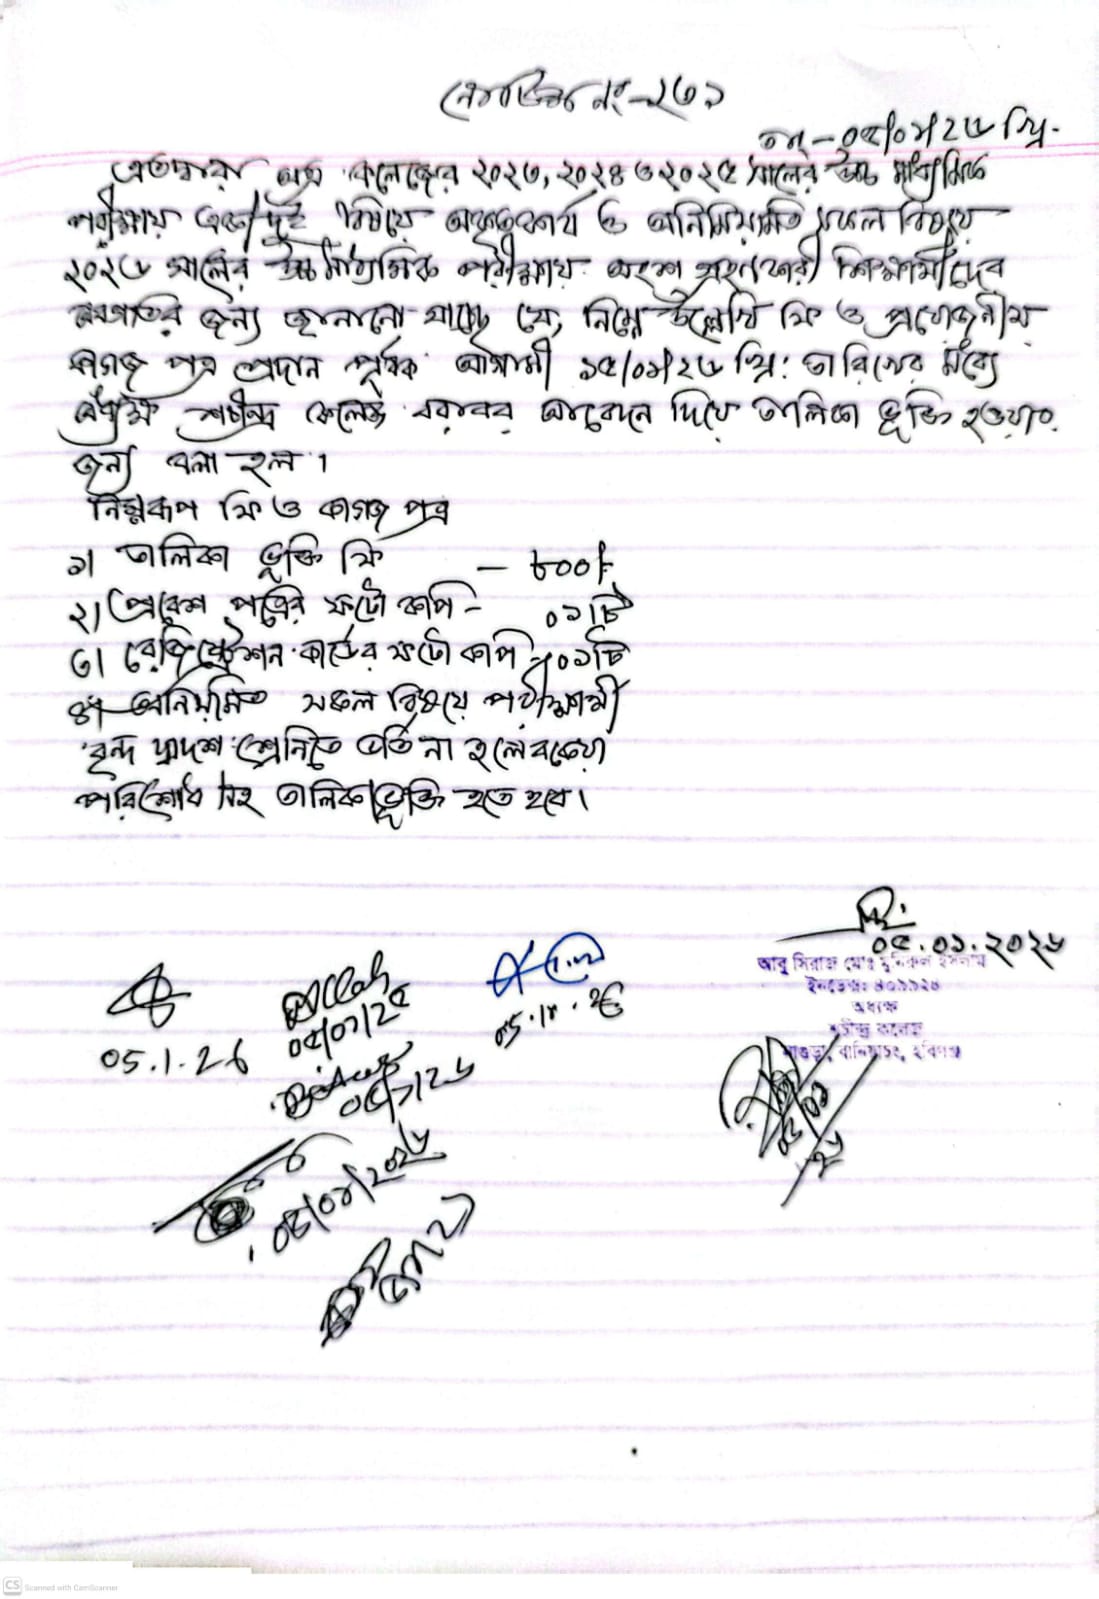 নোটিশ নং-২৩১
তাং-০৫/০১/২৬ খ্রি.
এতদ্বারা অত্র কলেজের ২০২৩, ২০২৪ ও ২০২৫ সালের উচ্চ মাধ্যমিক
পরীক্ষায় এক/দুই বিষয়ে অকৃতকার্য ও অনিময়মিত সকল বিষয়ে
২০২৬ সালের উচ্চমাধ্যমিক পরীক্ষায় অংশ গ্রহণকারী শিক্ষার্থীদের
অবগতির জন্য জানানো যাচ্ছে যে, নিম্নে উল্লেখি ফি ও প্রয়োজনীয়
কাগজ পত্র প্রদান পূর্বক আগামী ১৫/০১/২৬ খ্রি: তারিখের মধ্যে
অধ্যক্ষ শচীন্দ্র কলেজ বরাবর আবেদন দিয়ে তালিকা ভূক্তি হওয়ার
জন্য বলা হল।
নিম্নরূপ ফি ও কাগজ পত্র
১। তালিকা ভূক্তি ফি – ৮০০/-
২। প্রবেশ পত্রের ফটো কপি - ০১টি
৩। রেজিস্ট্রেশন কার্ডের ফটো কপি - ০১টি
৪। অনিয়মিত সকল বিষয়ে পরীক্ষার্থী
বৃন্দ দ্বাদশ শ্রেনিতে ভর্তি না হলে বকেয়া
পরিশোধ সহ তালিকাভূক্তি হতে হবে।
০৫.০১.২০২৬
আবু সিরাজ মোঃ মুনিরুল ইসলাম
ইনডেক্সঃ ৪০১১২৪
অধ্যক্ষ
শচীন্দ্র কলেজ
নাগুড়া, বানিয়াচং, হবিগঞ্জ
05.1.26
০৫/০১/২০২৬
Scanned with CamScanner